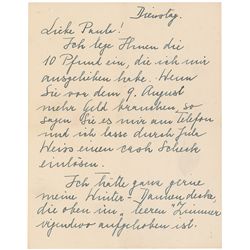 Dienstag.
Liebe Paula!
Ich lege Ihnen die
10 Pfund ein, die ich mir
ausgeliehen habe. Wenn
Sie vor dem 9. August
mehr Geld brauchen, so
sagen Sie es mir am Telefon
und ich lasse durch
Weiss einen cash Scheck
einlösen.
Ich hätte ganz gerne
meine Winter-Daunendecke,
die oben im „leeren" Zimmer
irgendwo aufgehoben ist.